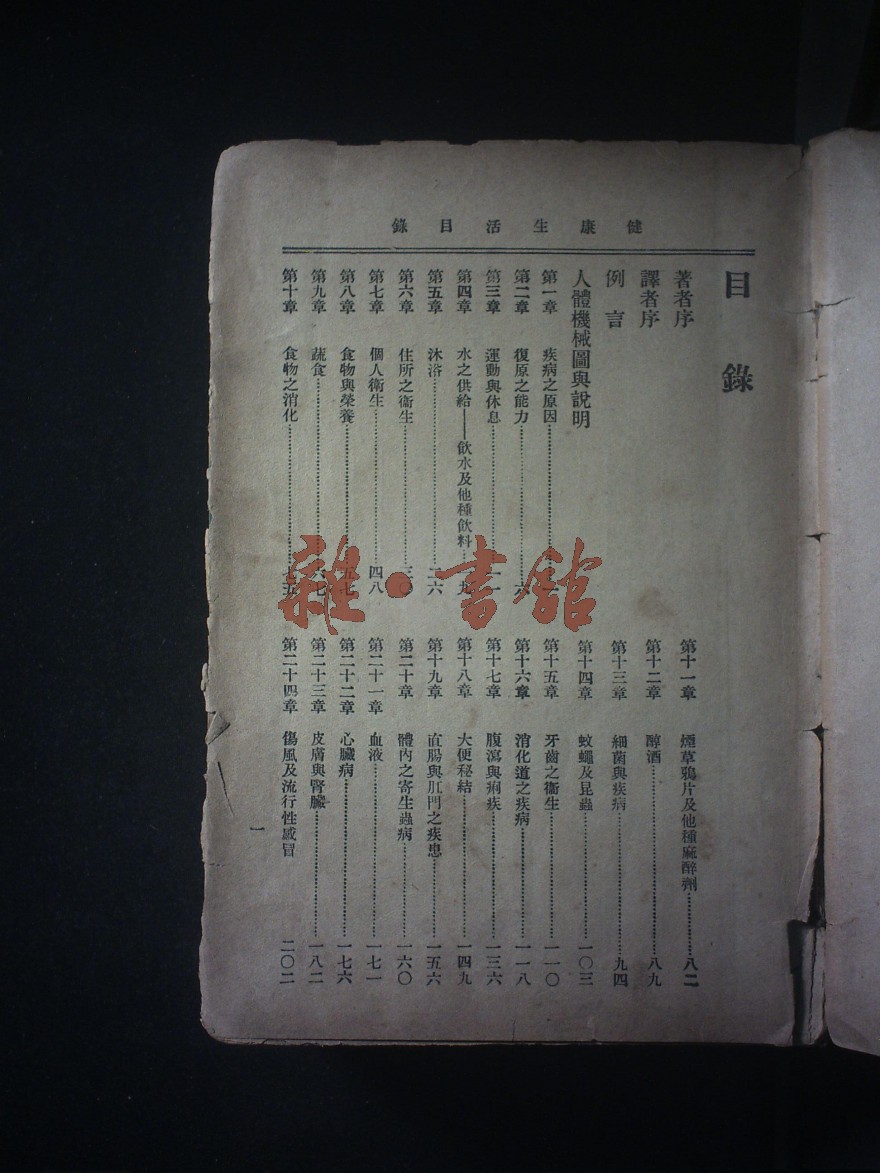 健康生活目錄
目錄
著者序
譯者序
例言
人體機械圖與說明
第一章 疾病之原因……
第二章 復原之能力……六
第三章 運動與休息……
第四章 水之供給——飲水及他種飲料…九
第五章 沐浴……二六
第六章 住所之衞生……三〇
第七章 個人衞生……四八
第八章 食物與榮養……五七
第九章 蔬食……七
第十章 食物之消化……七五
第十一章 煙草鴉片及他種麻醉劑……八二
第十二章 醇酒……八九
第十三章 細菌與疾病……九四
第十四章 蚊蠅及昆蟲……一〇三
第十五章 牙齒之衞生……一一〇
第十六章 消化道之疾病……一一八
第十七章 腹瀉與痢疾……一三六
第十八章 大便秘結……一四九
第十九章 直腸與肛門之疾患……一五六
第二十章 體內之寄生蟲病……一六〇
第二十一章 血液……一七一
第二十二章 心臟病……一七六
第二十三章 皮膚與腎臟……一八二
第二十四章 傷風及流行性感冒 二〇二
一
雜·書館